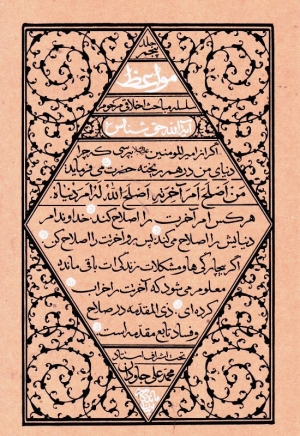 جلد پنجم
مواعظ
سلسله مباحث اخلاقی مرحوم
آیةالله حق شناس
اگر از امیرالمومنین علیه‌السلام بپرسی که چرا
دنیای من در هم ریخته حضرت می‌فرماید
مَن اَصلَحَ اَمرَ آخِرَتِهِ اَصلَحَ اللهُ لَهُ اَمرَ دُنیاهُ
هر کس امر آخرت را اصلاح کند خداوند امر
دنیایش را اصلاح می‌کند پس برو آخرتت را اصلاح کن
اگر بیچارگی‌ها و مشکلات زندگی‌ات باقی مانده
معلوم می‌شود که آخرتت را خراب
کرده‌ای ذی المقدمه در صلاح
و فساد تابع مقدمه است
تحت اشراف استاد
محمدعلی جاودان